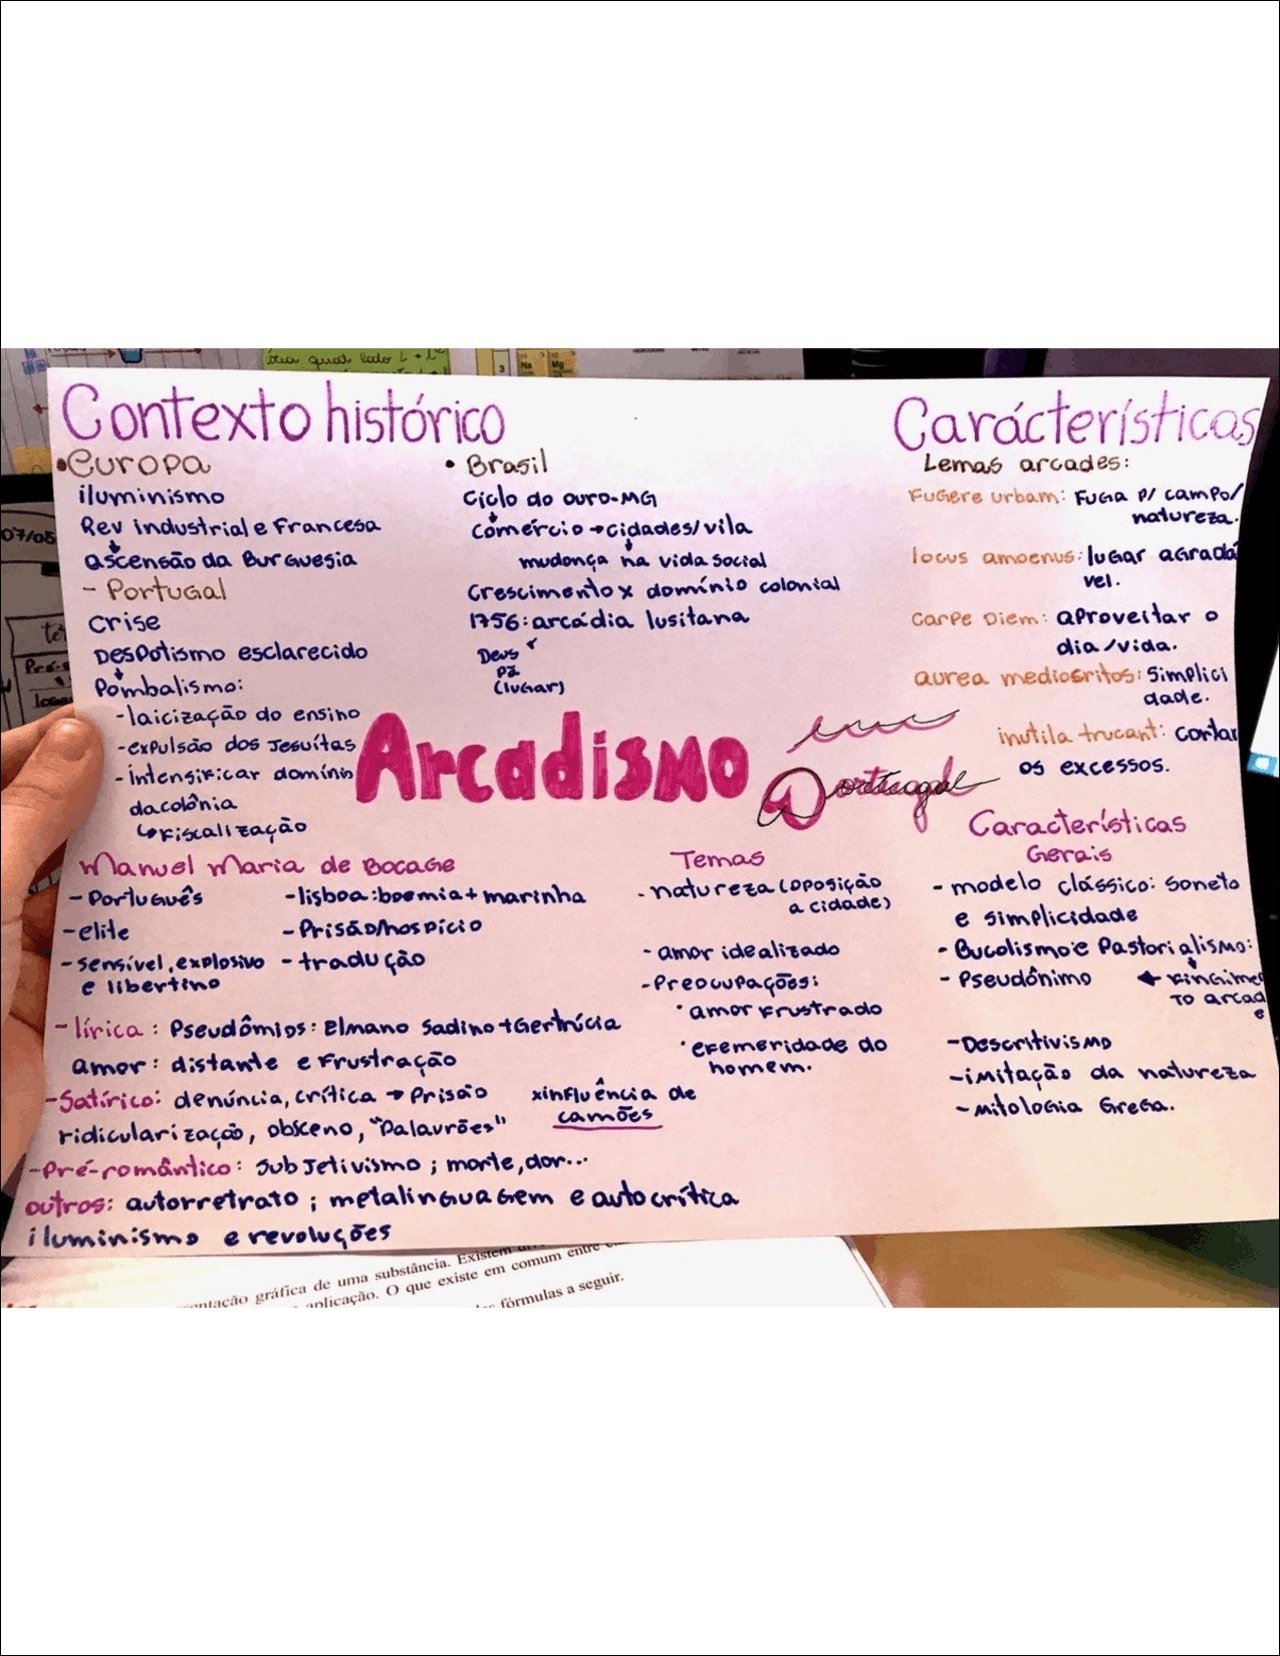 Contexto histórico
•Europa
iluminismo
Rev industrial e Francesa
ascensão da Burguesia
- Portugal
crise
Despotismo esclarecido
Pombalismo:
-laicização do ensino
-expulsão dos Jesuítas
-intensificar domínio
da colônia
↳Fiscalização
• Brasil
Ciclo do ouro-MG
comércio→cidades/vila
mudança na vida social
Crescimento x domínio colonial
1756: arcádia lusitana
Deus
Pã
(lugar)
Carácterísticas
Lemas arcades:
Fugere urbam: Fuga p/ campo/
natureza.
locus amoenus: lugar agradá
vel.
Carpe Diem: aproveitar o
dia/vida.
aurea mediocritos: Simplici
dade.
inutila trucant: cortar
os excessos.
Arcadismo em
Portugal
Manuel Maria de Bocage
-Português
-elite
-sensível, explosivo
e libertino
-lisboa: boemia + marinha
-Prisão/hospício
-tradução
-lírica: Pseudômios: Elmano Sadino + Gertrúcia
amor: distante e Frustração
-Satírico: denúncia, crítica → Prisão
ridicularização, obsceno, "Palavrões"
xinfluência de
camões
-Pré-romântico: subjetivismo; morte, dor...
outros: autorretrato; metalinguagem e autocrítica
iluminismo e revoluções
Temas
-natureza (oposição
a cidade)
-amor idealizado
-Preocupações:
•amor Frustrado
•efemeridade do
homem.
Características
Gerais
- modelo clássico: Soneto
e simplicidade
- Bucolismo e Pastorialismo:
- Pseudônimo ← Fingimen
to arcad
e
-Descritivismo
-imitação da natureza
-mitologia Grega.
07/05
Na
Mg
3
gráfica de uma substância. Existem
aplicação. O que existe em comum entre
fórmulas a seguir.